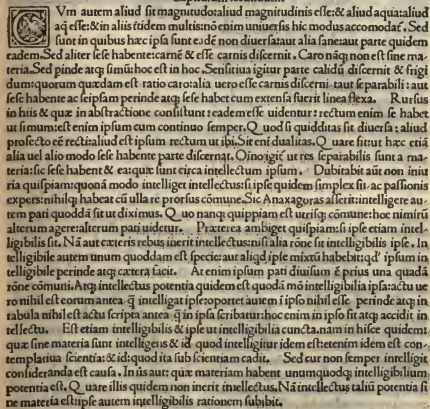 Vm autem aliud sit magnitudo: aliud magnitudinis esse: & aliud aqua: aliud
aq̃ esse: & in aliis itidem multis: nõ enim uniuersis hic modus accomodaƭ. Sed
sunt in quibus hæc ipsa sunt eadẽ non diuersa: aut alia sane: aut parte quidem
eadem. Sed aliter sese habente: carnẽ & esse carnis discernit. Caro nãq̃ non est sine ma-
teria. Sed perinde atq; simũ: hoc est in hoc. Sensitiua igitur parte calidũ discernit & frigi
dum: quorum quædam est ratio caro: alia uero esse carnis discerni: aut separabili: aut
sese habente ac seipsam perinde atq; sese habet cum extensa fuerit linea flexa. Rursus
in hiis & quæ in abstractione consistunt: eadem esse uidentur: rectum enim se habet
ut simum: est enim ipsum cum continuo semper. Quod si quidditas sit diuersa: aliud
profecto eẽ recti: aliud est ipsum rectum ut ibi. Sit eni dualitas. Quare sittut hæc etiã
alia uel alio modo sese habente parte discernat. Oĩno igiƭ ut res separabilis sunt a ma-
teria: sic sese habent & ea: quæ sunt circa intellectum ipsum. Dubitabit aũt non iniu
ria quispiam: quonã modo intelliget intellectus: si ipse quidem simplex sit ac passionis
expers: nihilq; habeat cũ ulla re prorsus cõmune. Sic Anaxagoras asserit: intelligere au-
tem pati quoddã sit ut diximus. Quo nanq; quippiam est utrisq; cõmune: hoc nimirũ
alterum agere: alterum pati uidetur. Præterea ambiget quispiam: si ipse etiam intel-
ligibilis sit. Nã aut cæteris rebus inerit intellectus: nisi alia rõne sit intelligibilis ipse. In
telligibile autem unum quoddam est specie: aut aliqd ipse mixtũ habebit: qd' ipsum in
telligibile perinde atq; cætera facit. At enim ipsum pati diuisum ẽ prius una quadã
rõne cõmuni. Atq; intellectus potentia quidem est quodã mõ intelligibilia ipsa: actu ue
ro nihil est eorum antea q̃ intelligat ipse: oportet autem ĩ ipso nihil esse perinde atq; in
tabula nihil est actu scripta antea q̃ in ipsa scribatur: hoc enim in ipso sit atq; accidit in
tellectu. Est etiam intelligibilis & ipse ut intelligibilia cuncta. nam in hisce quidem:
quæ sine materia sunt intelligens & id quod intelligitur idem est: etenim idem est con-
templatiua scientia: & id: quod ita sub scientiam cadit. Sed cur non semper intelligit
consideranda est causa. In iis aut: quæ materiam habent unumquodq; intelligibilium
potentia est. Quare illis quidem non inerit intellectus. Nã intellectus taliũ potentia si
ne materia est: ipse autem intelligibilis rationem subibit.